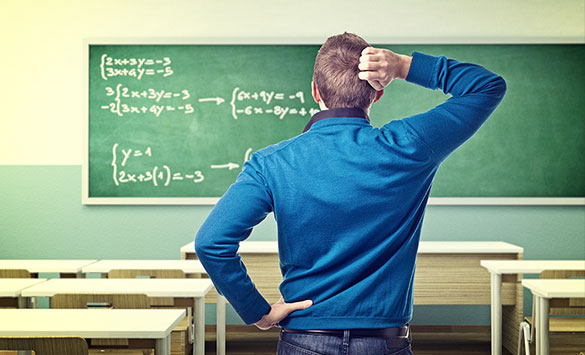 {2x+3y=-3
3x+4y=-5
3{2x+3y=-3
-2{3x+4y=-5
{6x+9y= -9
-6x-8y=
{y=1
{2x+3(1)=-3